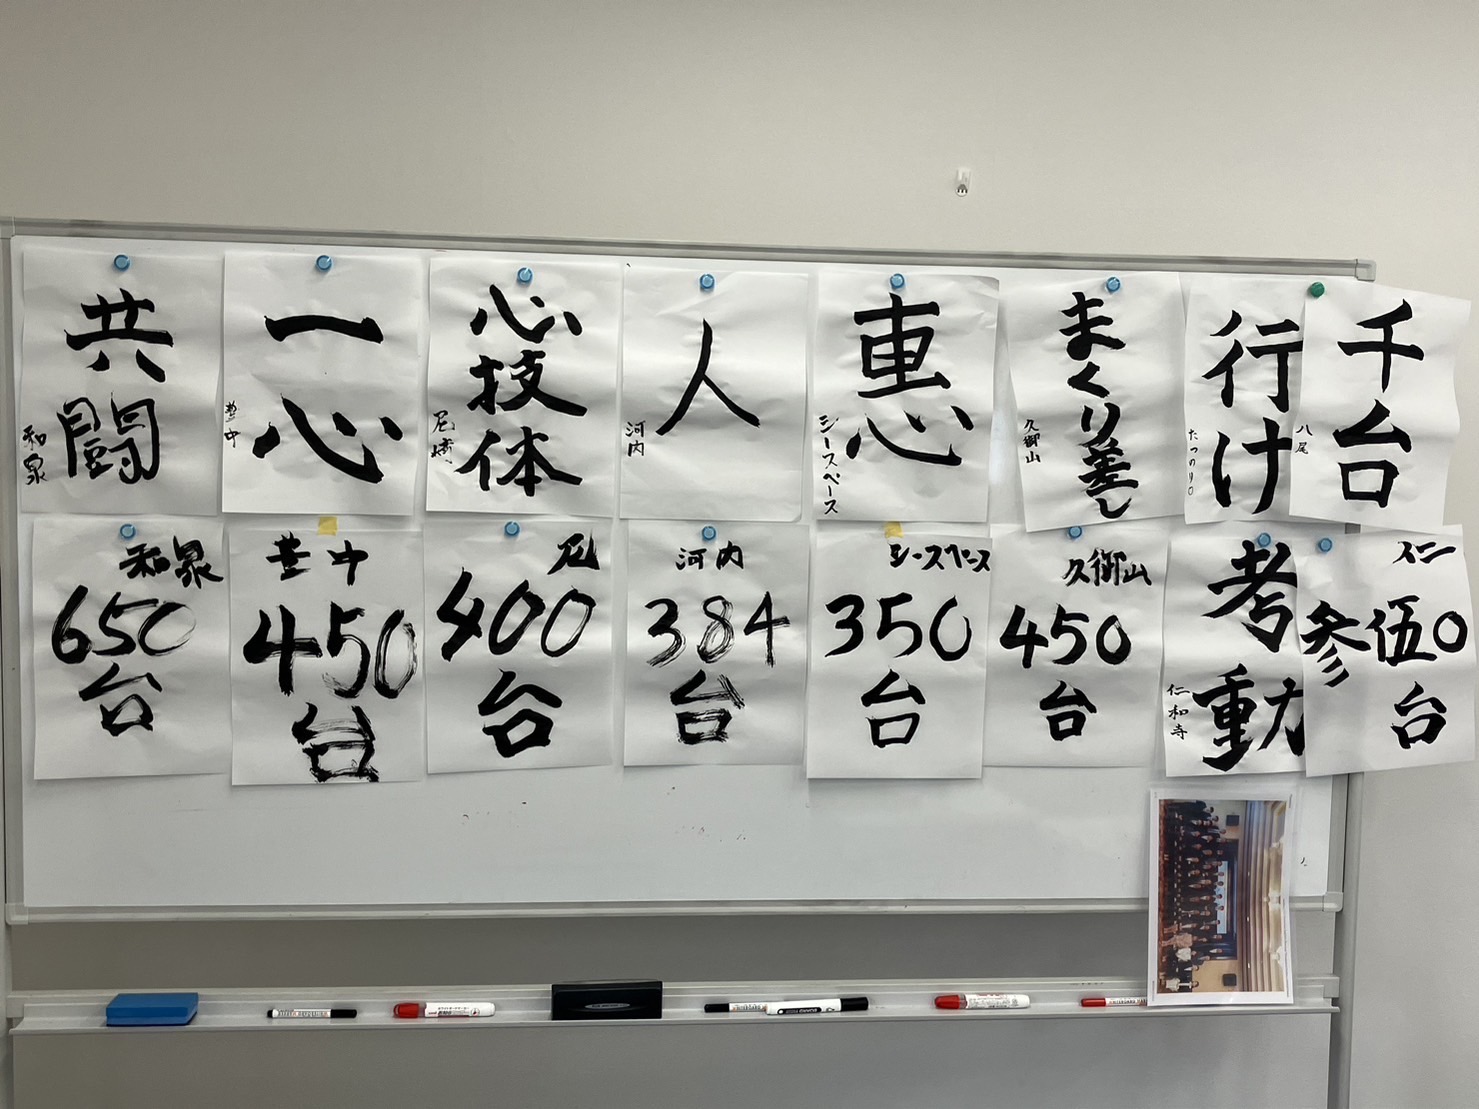 共闘
和泉
一心
豊中
心技体
尼崎
人
河内
恵
シースペース
まくり差し
久御山
行け
たつのり〇
千台
八尾
和泉
650
台
豊中
450
台
尼
400
台
河内
384
台
シースペース
350
台
久御山
450
台
考動
仁和寺
仁
参伍〇
台